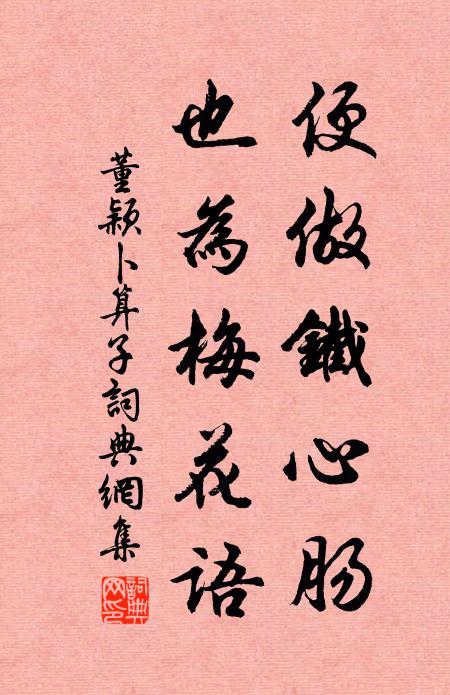 便做鐵心腸
也為梅花語
董穎卜算子詞典網集
詞典
網印